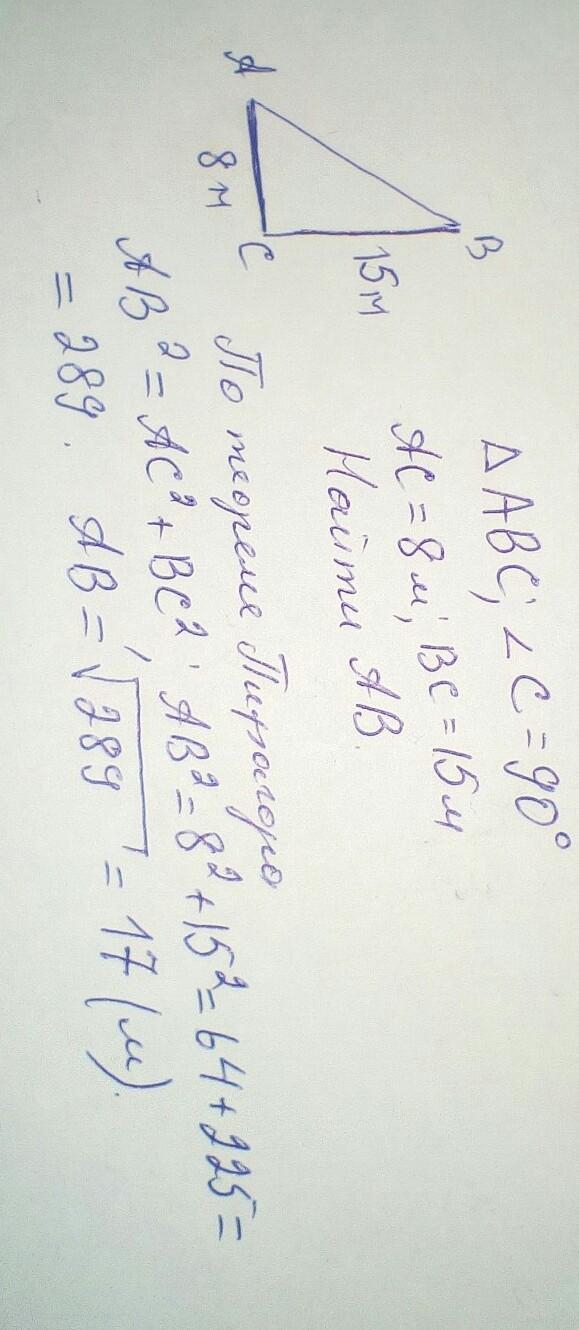 A
8 м
C
B
15м
△ ABC; ∠C = 90°
AC = 8 м; BC = 15м
Найти AB.
По теореме Пифагора
AB² = AC² + BC²; AB² = 8² + 15² = 64 + 225 =
= 289. AB = √289 = 17 (м).